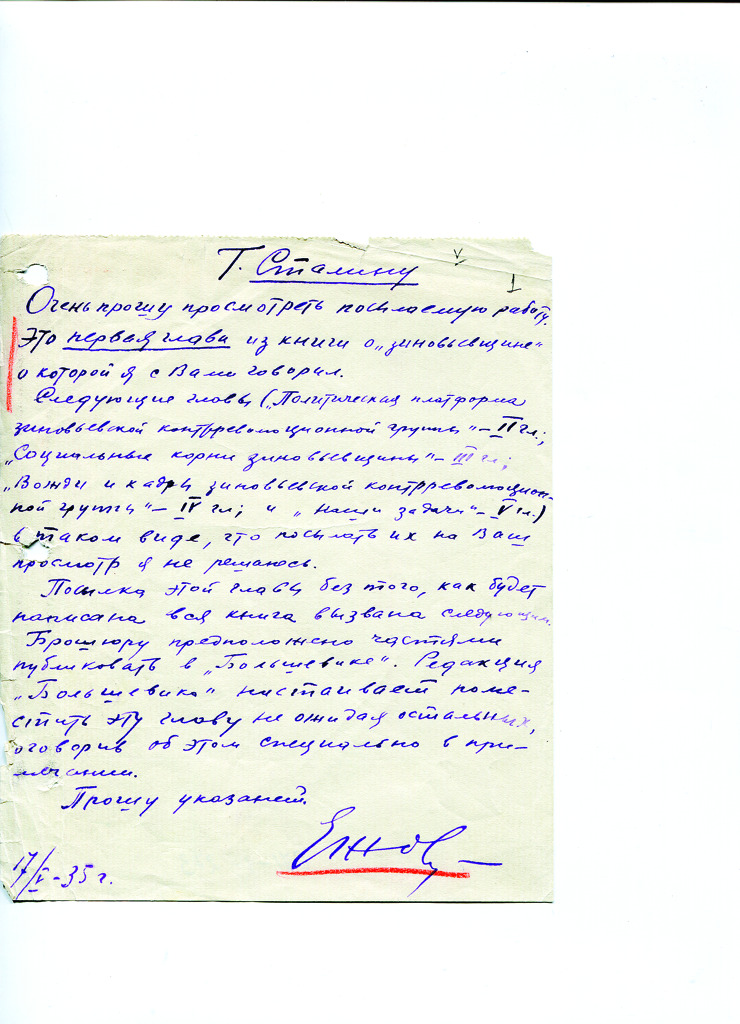 v
1
Т. Сталину
Очень прошу просмотреть посылаемую работу.
Это первая глава из книги о „зиновьевщине"
о которой я с Вами говорил.
Следующие главы („Политическая платформа
зиновьевской контрреволюционной группы" – II гл.;
„Социальные корни зиновьевщины" – III гл;
„Вожди и кадры зиновьевской контрреволюцион-
ной группы" – IV гл; и „Наши задачи" – V гл.)
в таком виде, что посылать их на Ваш
просмотр я не решаюсь.
Посылка этой главы без того, как будет
написана вся книга вызвана следующим.
Брошюру предположено частями
публиковать в „Большевике". Редакция
„Большевика" настаивает поме-
стить эту главу не ожидая остальных,
оговорив об этом специально в при-
мечании.
Прошу указаний.
Ежов
17/V – 35 г.